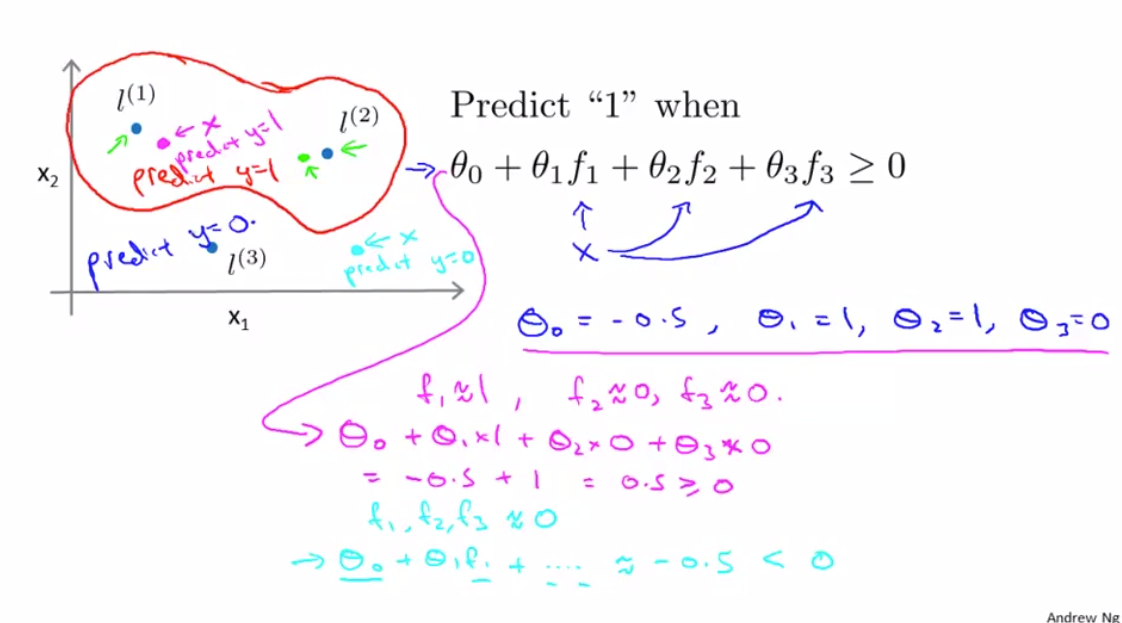 l⁽¹⁾
← x
predict y=1
l⁽²⁾
predict y=1
x₂
predict y=0.
l⁽³⁾
← x
predict y=0
x₁
Predict “1” when
→ θ₀ + θ₁f₁ + θ₂f₂ + θ₃f₃ ≥ 0
x
θ₀ = -0.5, θ₁ = 1, θ₂ = 1, θ₃ = 0
f₁ ≈ 1, f₂ ≈ 0, f₃ ≈ 0.
→ θ₀ + θ₁×1 + θ₂×0 + θ₃×0
= -0.5 + 1 = 0.5 ≥ 0
f₁, f₂, f₃ ≈ 0
→ θ₀ + θ₁f₁ + .... ≈ -0.5 < 0
Andrew Ng